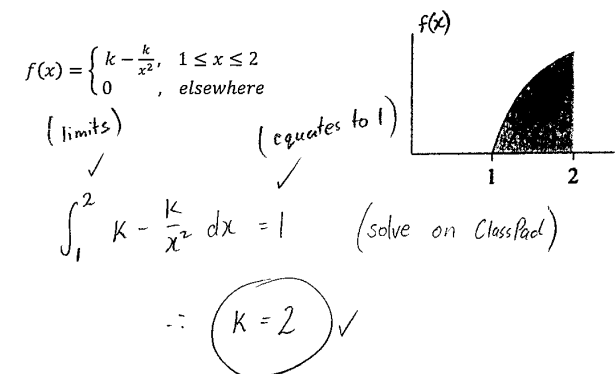 f(x)
f(x) = { k - k/x², 1 ≤ x ≤ 2
0 , elsewhere
(limits) ✓
(equates to 1) ✓
1 2
∫₁² K - K/x² dx = 1 (solve on ClassPad)
∴ K = 2 ✓